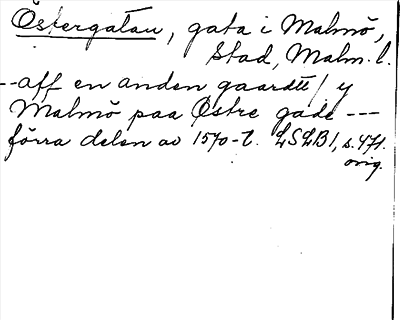 Östergatan, gata i Malmö,
stad, Malm. l.
--aff en anden gaardtt / y
Malmö paa Østre gade ---
förra delen av 1570-t. LSLB 1, s. 471.
orig.